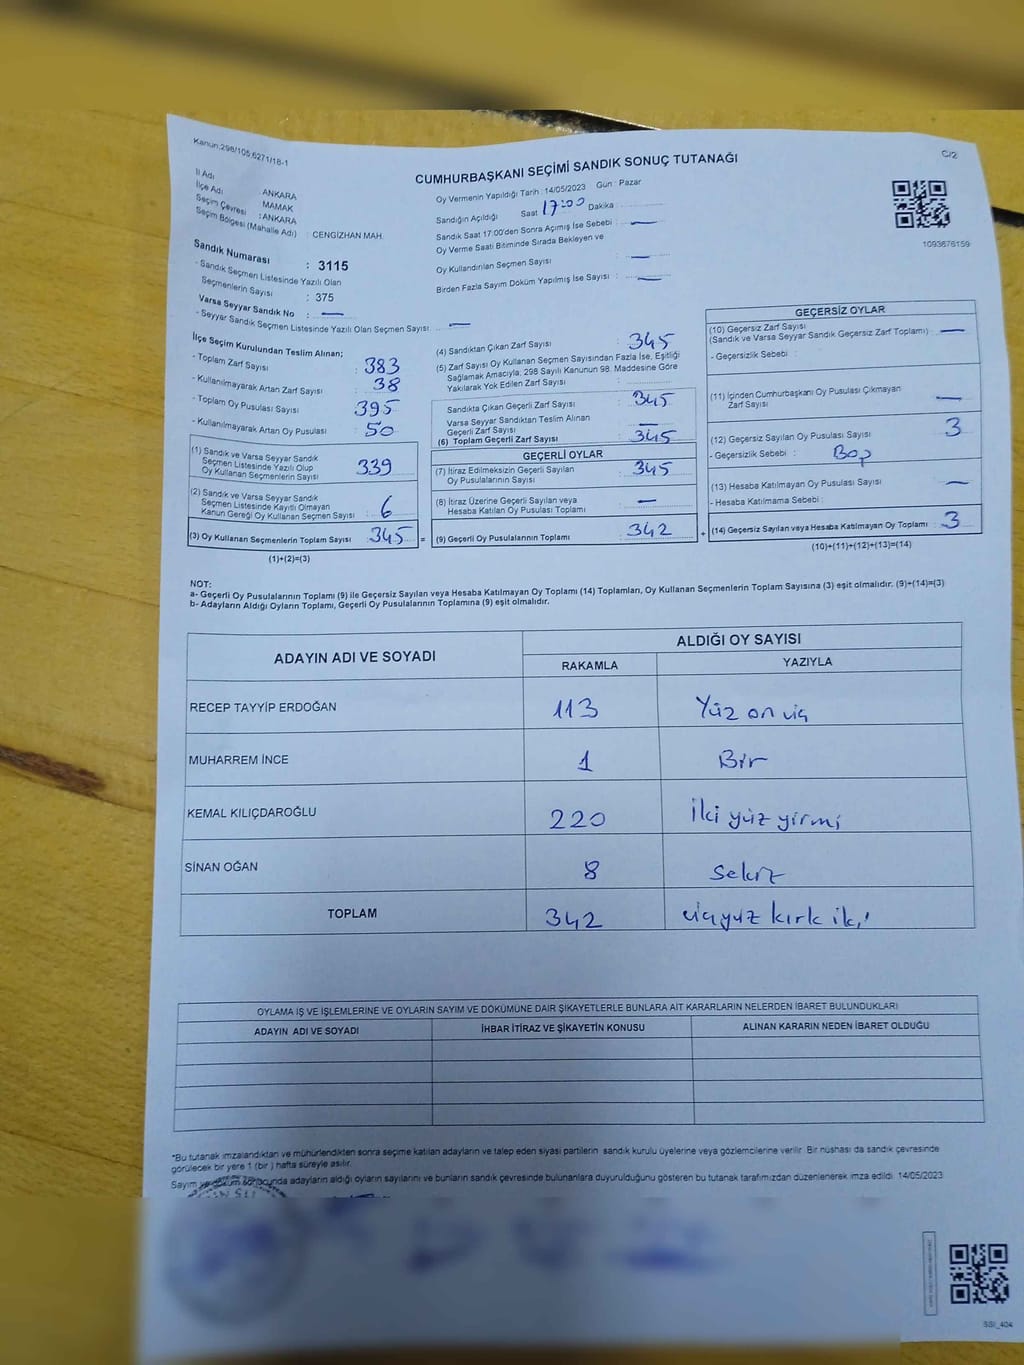 Kanun:298/105,6271/18-1
C/2
CUMHURBAŞKANI SEÇİMİ SANDIK SONUÇ TUTANAĞI
İl Adı
ANKARA
İlçe Adı
MAMAK
Seçim Çevresi
:ANKARA
Seçim Bölgesi (Mahalle Adı) : CENGİZHAN MAH.
Sandık Numarası : 3115
- Sandık Seçmen Listesinde Yazılı Olan
Seçmenlerin Sayısı : 375
Varsa Seyyar Sandık No : —
- Seyyar Sandık Seçmen Listesinde Yazılı Olan Seçmen Sayısı: —
Oy Vermenin Yapıldığı Tarih : 14/05/2023 Gün : Pazar
Sandığın Açıldığı Saat 17:00 Dakika :
Sandık Saat 17:00'den Sonra Açımış İse Sebebi : —
Oy Verme Saati Bitiminde Sırada Bekleyen ve
Oy Kullandırılan Seçmen Sayısı : —
Birden Fazla Sayım Döküm Yapılmış İse Sayısı : —
1093676159
İlçe Seçim Kurulundan Teslim Alınan;
- Toplam Zarf Sayısı : 383
- Kullanılmayarak Artan Zarf Sayısı : 38
- Toplam Oy Pusulası Sayısı : 395
- Kullanılmayarak Artan Oy Pusulası : 50
(1) Sandık ve Varsa Seyyar Sandık
Seçmen Listesinde Yazılı Olup
Oy Kullanan Seçmenlerin Sayısı : 339
(2) Sandık ve Varsa Seyyar Sandık
Seçmen Listesinde Kayıtlı Olmayan
Kanun Gereği Oy Kullanan Seçmen Sayısı : 6
(3) Oy Kullanan Seçmenlerin Toplam Sayısı : 345 =
(1)+(2)=(3)
(4) Sandıktan Çıkan Zarf Sayısı : 345
(5) Zarf Sayısı Oy Kullanan Seçmen Sayısından Fazla İse, Eşitliği
Sağlamak Amacıyla, 298 Sayılı Kanunun 98. Maddesine Göre
Yakılarak Yok Edilen Zarf Sayısı :
Sandıkta Çıkan Geçerli Zarf Sayısı : 345
Varsa Seyyar Sandıktan Teslim Alınan
Geçerli Zarf Sayısı : —
(6) Toplam Geçerli Zarf Sayısı : 345
GEÇERLİ OYLAR
(7) İtiraz Edilmeksizin Geçerli Sayılan
Oy Pusulalarının Sayısı : 345
(8) İtiraz Üzerine Geçerli Sayılan veya
Hesaba Katılan Oy Pusulası Toplamı : —
(9) Geçerli Oy Pusulalarının Toplamı : 342 +
GEÇERSİZ OYLAR
(10) Geçersiz Zarf Sayısı
(Sandık ve Varsa Seyyar Sandık Geçersiz Zarf Toplamı) : —
- Geçersizlik Sebebi :
(11) İçinden Cumhurbaşkanı Oy Pusulası Çıkmayan
Zarf Sayısı : —
(12) Geçersiz Sayılan Oy Pusulası Sayısı : 3
- Geçersizlik Sebebi : Boş
(13) Hesaba Katılmayan Oy Pusulası Sayısı : —
- Hesaba Katılmama Sebebi :
(14) Geçersiz Sayılan veya Hesaba Katılmayan Oy Toplamı : 3
(10)+(11)+(12)+(13)=(14)
NOT:
a- Geçerli Oy Pusulalarının Toplamı (9) ile Geçersiz Sayılan veya Hesaba Katılmayan Oy Toplamı (14) Toplamları, Oy Kullanan Seçmenlerin Toplam Sayısına (3) eşit olmalıdır. (9)+(14)=(3)
b- Adayların Aldığı Oyların Toplamı, Geçerli Oy Pusulalarının Toplamına (9) eşit olmalıdır.
ADAYIN ADI VE SOYADI
ALDIĞI OY SAYISI
RAKAMLA YAZIYLA
RECEP TAYYİP ERDOĞAN 113 Yüz on üç
MUHARREM İNCE 1 Bir
KEMAL KILIÇDAROĞLU 220 İki yüz yirmi
SİNAN OĞAN 8 Sekiz
TOPLAM 342 üçyüz kırk iki
OYLAMA İŞ VE İŞLEMLERİNE VE OYLARIN SAYIM VE DÖKÜMÜNE DAİR ŞİKAYETLERLE BUNLARA AİT KARARLARIN NELERDEN İBARET BULUNDUKLARI
ADAYIN ADI VE SOYADI İHBAR İTİRAZ VE ŞİKAYETİN KONUSU ALINAN KARARIN NEDEN İBARET OLDUĞU
*Bu tutanak imzalandıktan ve mühürlendikten sonra seçime katılan adayların ve talep eden siyasi partilerin sandık kurulu üyelerine veya gözlemcilerine verilir. Bir nüshası da sandık çevresinde
görülecek bir yere 1 (bir ) hafta süreyle asılır.
Sayım ve döküm sonucunda adayların aldığı oyların sayılarını ve bunların sandık çevresinde bulunanlara duyurulduğunu gösteren bu tutanak tarafımızdan düzenlenerek imza edildi. 14/05/2023
SSI_404